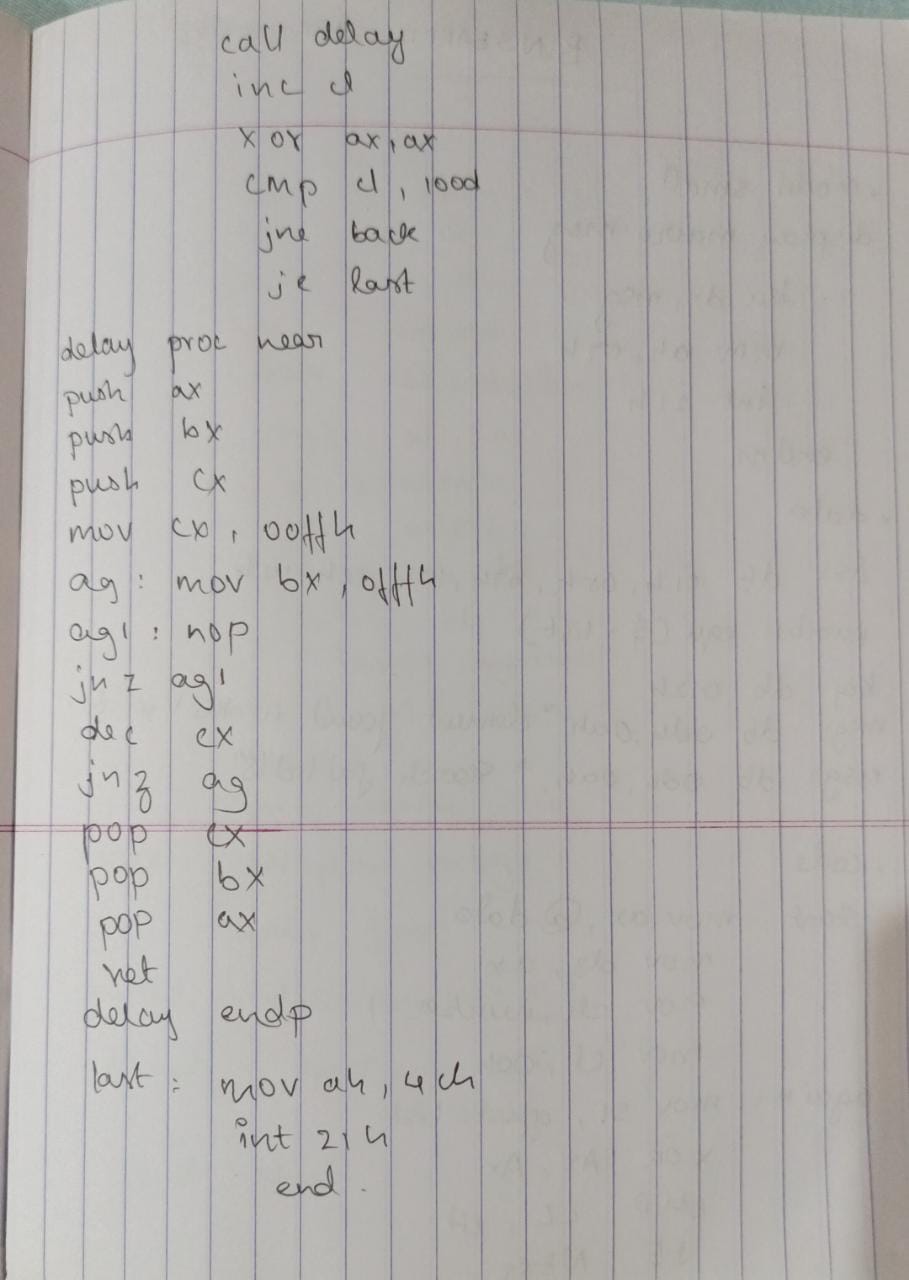 call delay
inc cl
xor ax, ax
cmp cl, 100d
jne back
je last
delay proc near
push ax
push bx
push cx
mov cx, 00ffh
ag: mov bx, 0fffh
ag1: nop
jnz ag1
dec cx
jnz ag
pop cx
pop bx
pop ax
ret
delay endp
last: mov ah, 4ch
int 21h
end.